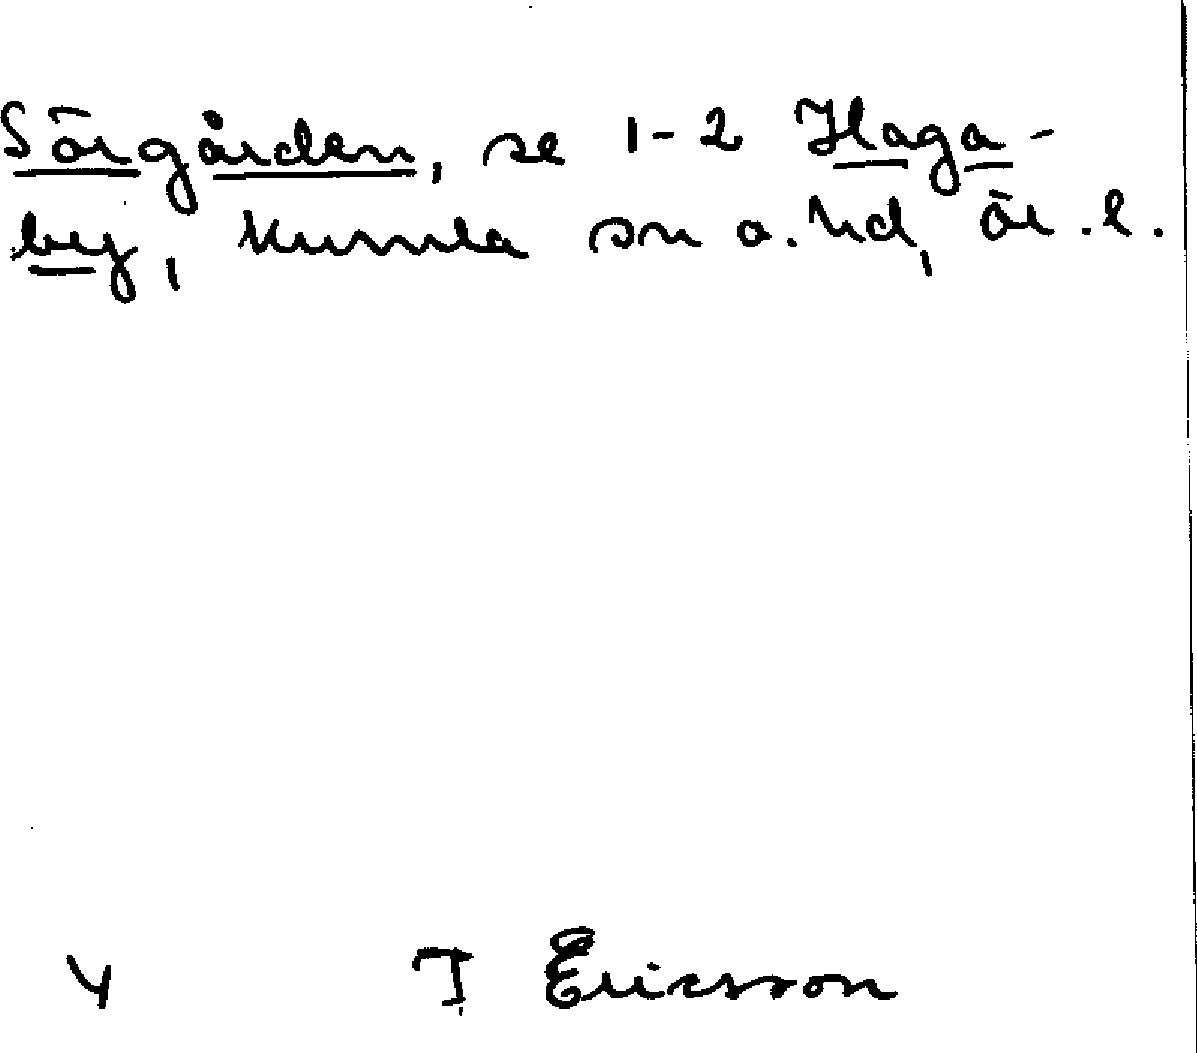 Sörgården, se 1-2 Haga-
by, Kumla sn o. hd, Ör. l.
4 I Ericsson